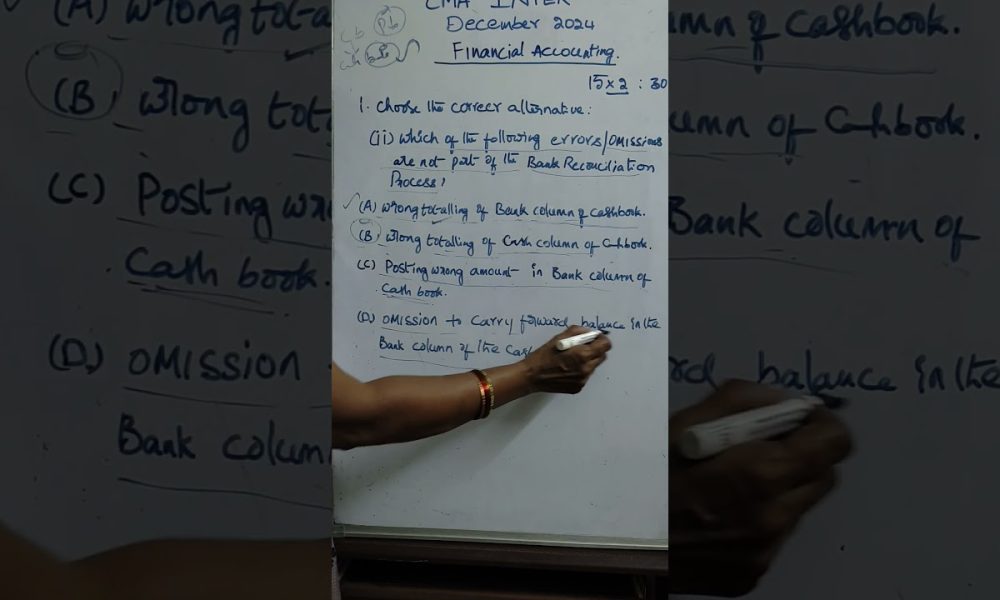 CMA INTER
December 2024
Financial Accounting.
15 x 2 : 30
1. choose the correct alternative:
(ii) which of the following errors/omissions
are not part of the Bank Reconciliation
Process?
(A) wrong totalling of Bank column of cashbook.
(B) wrong totalling of Cash column of Cashbook.
(C) Posting wrong amount in Bank column of
Cash book.
(D) omission to carry forward balance in the
Bank column of the Cas